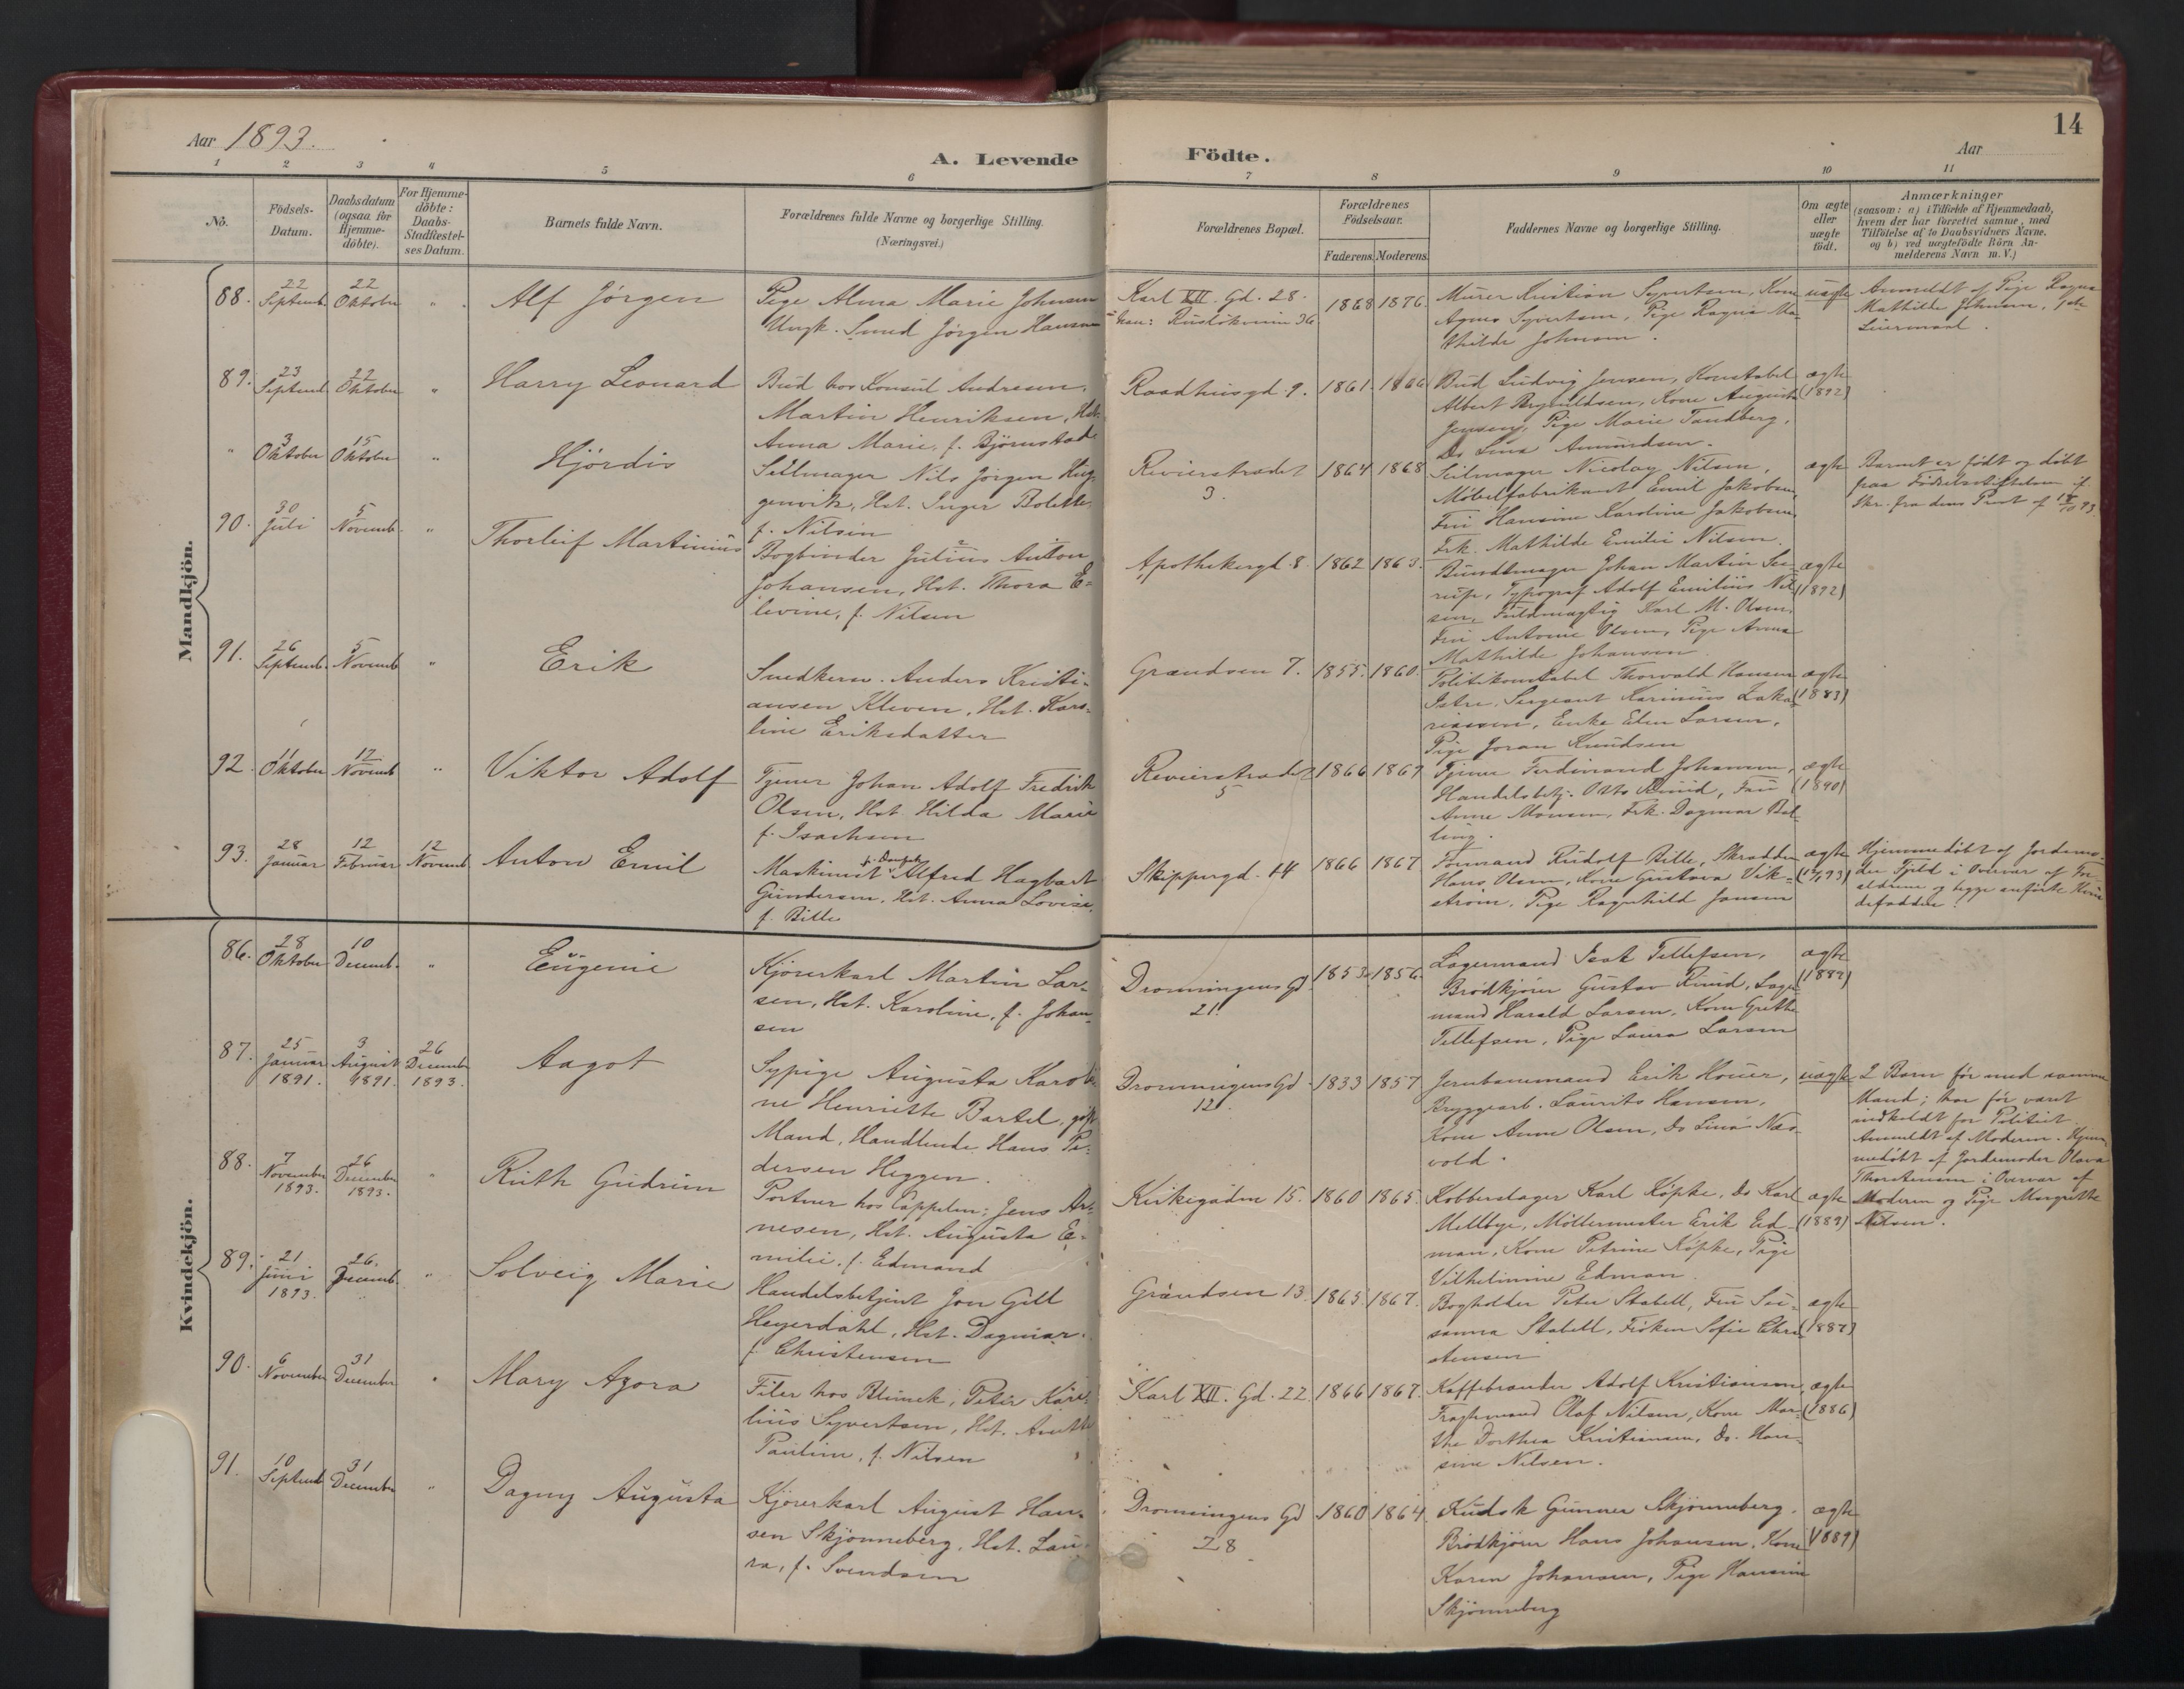 14
Aar 1893.
A. Levende
Födte.
Aar
1 2 3 4 5 6 7 8 9 10 11
No.
Födsels-
Datum.
Daabsdatum
(ogsaa for
Hjemme-
döbte).
For Hjemme-
döbte:
Daabs-
Stadfæstel-
ses Datum.
Barnets fulde Navn.
Forældrenes fulde Navne og borgerlige Stilling.
(Næringsvei.)
Forældrenes Bopæl.
Forældrenes
Födselsaar.
Faderens. Moderens.
Faddernes Navne og borgerlige Stilling.
Om ægte
eller
uægte
födt.
Anmærkninger
(saasom: a) i Tilfælde af Hjemmedaab,
hvem der har forrettet samme, med
Tilföielse af to Daabsvidners Navne.
og b) ved uægtefödte Börn An-
melderens Navn m. V.)
Mandkjön.
88.
22 Septemb.
22 Oktober
"
Alf Jörgen
Pige Alma Marie Johnsen
Ungk. Smed Jörgen Hansen
Karl XII. Gd. 28.
han: Rusløkveien 36
1868 1876.
Murer Kristian Syvertsen, Kone
Agnes Syvertsen, Pige Ragna Ma-
thilde Johnsen.
uægte
Anmeldt af Pige Ragna
Mathilde Johnsen,
89.
23 Septemb.
22 Oktober
"
Harry Leonard
Bud hos Konsul Andresen,
Martin Henriksen, Hst.
Anna Marie, f. Björnstad
Raadhusgd. 9.
1861. 1866
Bud Ludvig Jensen, Konstabel
Albert Brynildsen, Kone Augusta
Jensen, Pige Marie Tandberg,
Do Lina Amundsen.
ægte
(1892)
"
3 Oktober
15 Oktober
"
Hjördis
Seilmager Nils Jörgen Hug-
genvik, Hst. Inger Bolette
f. Nilsen
Revierstrædet
3.
1864 1868
Seilmager Nicolay Nilsen,
Møbelfabrikant Emil Jakobsen,
Fru Hansine Karoline Jakobsen,
Frk. Mathilde Emilie Nilsen.
ægte
Barnet er født og døbt
paa Fødselsstiftelsen if.
Skr. fra dens Præst af 18/10 93.
90.
30 Juli
5 Novemb.
"
Thorleif Martinius
Bogbinder Julius Anton
Johansen, Hst. Thora E-
levine, f. Nilsen
Apothekergd. 8.
1862 1863.
Bundtmager Johan Martin
Typograf Adolf Emilius Nil-
sen, Fuldmægtig Karl M. Olsen,
Fru Antonie Olsen, Pige Anna
Mathilde Johansen.
ægte
(1892)
91.
26 Septemb.
5 Novemb.
"
Erik
Snedkersv. Anders Kristi-
ansen Kleven, Hst. Karo-
line Eriksdatter
Grændsen 7.
1855. 1860.
Politikonstabel Thorvald Hansen
Sergeant Karinius Zaka-
riassen, Enke Elen Larsen,
Pige Joran Knudsen
ægte
(1883)
92.
11 Oktober
12 Novemb.
"
Viktor Adolf
Tjener Johan Adolf Fredrik
Olsen, Hst Hilda Marie
f. Isachsen
Revierstrædet
5
1866 1867
Tjener Ferdinand Johansen,
Handelsbetj. Otto Rund, Fru
Anne Monsen, Frk. Dagmar Bal-
ling.
ægte
(1890)
93.
28 Januar
12 Februar
12 Novemb.
Anton Emil
Maskinist Alfred Hagbart
Gundersen, Hst. Anna Lovise,
f. Bille
Skippergd. 14
1866 1867
Formand Rudolf Bille, Skrædder
Hans Olsen, Kone Gustava Vik-
strøm, Pige Ragnhild Jansen
ægte
Hjemmedøbt af Jordemo-
der Fjeld i Overvær af For-
ældrene og begge anførte Kvin-
defaddere.
Kvindekjön.
86.
28 Oktober
10 Decemb.
"
Eugenie
Kjørerkarl Martin Lar-
sen, Hst. Karoline, f. Johan-
sen
Dronningens Gd
21.
1853. 1856.
Lagermand Isak Tellefsen,
Brödkjører Gustav Rund, Lager-
mand Harald Larsen, Kone Grethe
Tellefsen, Pige Laura Larsen
ægte
(1882)
87.
25 Januar 1891.
3 August 1891.
26 Decembr 1893.
Aagot
Sypige Augusta Karoli-
ne Henriette Bartel, gift
Mand, Handlende Hans Pe-
dersen Heggen.
Dronningens Gd
12.
1833 1857
Jernbanemand Erik Houer,
Bryggearb. Laurits Hansen,
Kone Anne Olsen, Do Lina Næs-
vold.
uægte
2 Børn før med samme
Mand; har før været
indkaldt for Politiet.
Anmeldt af Moderen. Hjem-
medøbt af Jordemoder Olava
i Overvær af
Moderen og Pige Margrethe
Nilsen.
88.
7 November 1893.
26 December 1893.
"
Ruth Gudrun
Portner hos Cappelen; Jens Ar-
nesen, Hst. Augusta E-
milie, f. Edmand
Kirkegaden 15.
1860 1865.
Kobberslager Karl Köpke, Do Karl
Mellbye, Möllermester Erik Ed-
man, Kone Petrine Köpke, Pige
Vilhelmine Edman.
ægte
(1889)
89.
21 Juni 1893.
26. Decemb.
"
Solveig Marie
Handelsbetjent Jon Gell
Heyerdahl, Hst. Dagmar,
f. Christensen
Grændsen 13.
1865. 1867.
Bogholder Peter Stabell, Fru Su-
sanna Stabell, Frøken Sofie Chri-
stensen
ægte
(1887)
90.
6 November
31 December
"
Mary Azora
Filer hos Blunck, Peter Kor-
lius Syvertsen, Hst. Anette
Pauline, f. Nilsen
Karl XII. Gd. 22
1866 1867.
Kaffebrænder Adolf Kristiansen,
Fragtmand Olaf Nilsen, Kone Mar-
the Dorthea Kristiansen, Do. Han-
sine Nilsen.
ægte
(1886)
91.
10 Septemb
31 December
"
Dagny Augusta
Kjørerkarl August Han-
sen Skjønneberg, Hst. Lau-
ra, f. Svendsen
Dronningens Gd
28
1860 1864.
Kudsk Gunner Skjønneberg.
Brödkjører Hans Johansen, Kone
Karen Johansen, Pige Hansine
Skjønneberg
ægte
(1889)